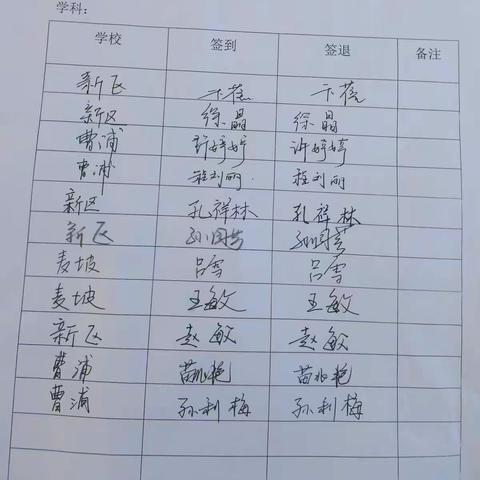 学科：
学校 签到 签退 备注
新区 卞蓓 卞蓓
新区 徐晶 徐晶
曹浦 许婷婷 许婷婷
曹浦 程刘丽 程刘丽
新区 孔祥林 孔祥林
新区 孙国芳 孙国芳
麦坡 吕雪 吕雪
麦坡 王敏 王敏
新区 赵敏 赵敏
曹浦 苗兆艳 苗兆艳
曹浦 孙利梅 孙利梅